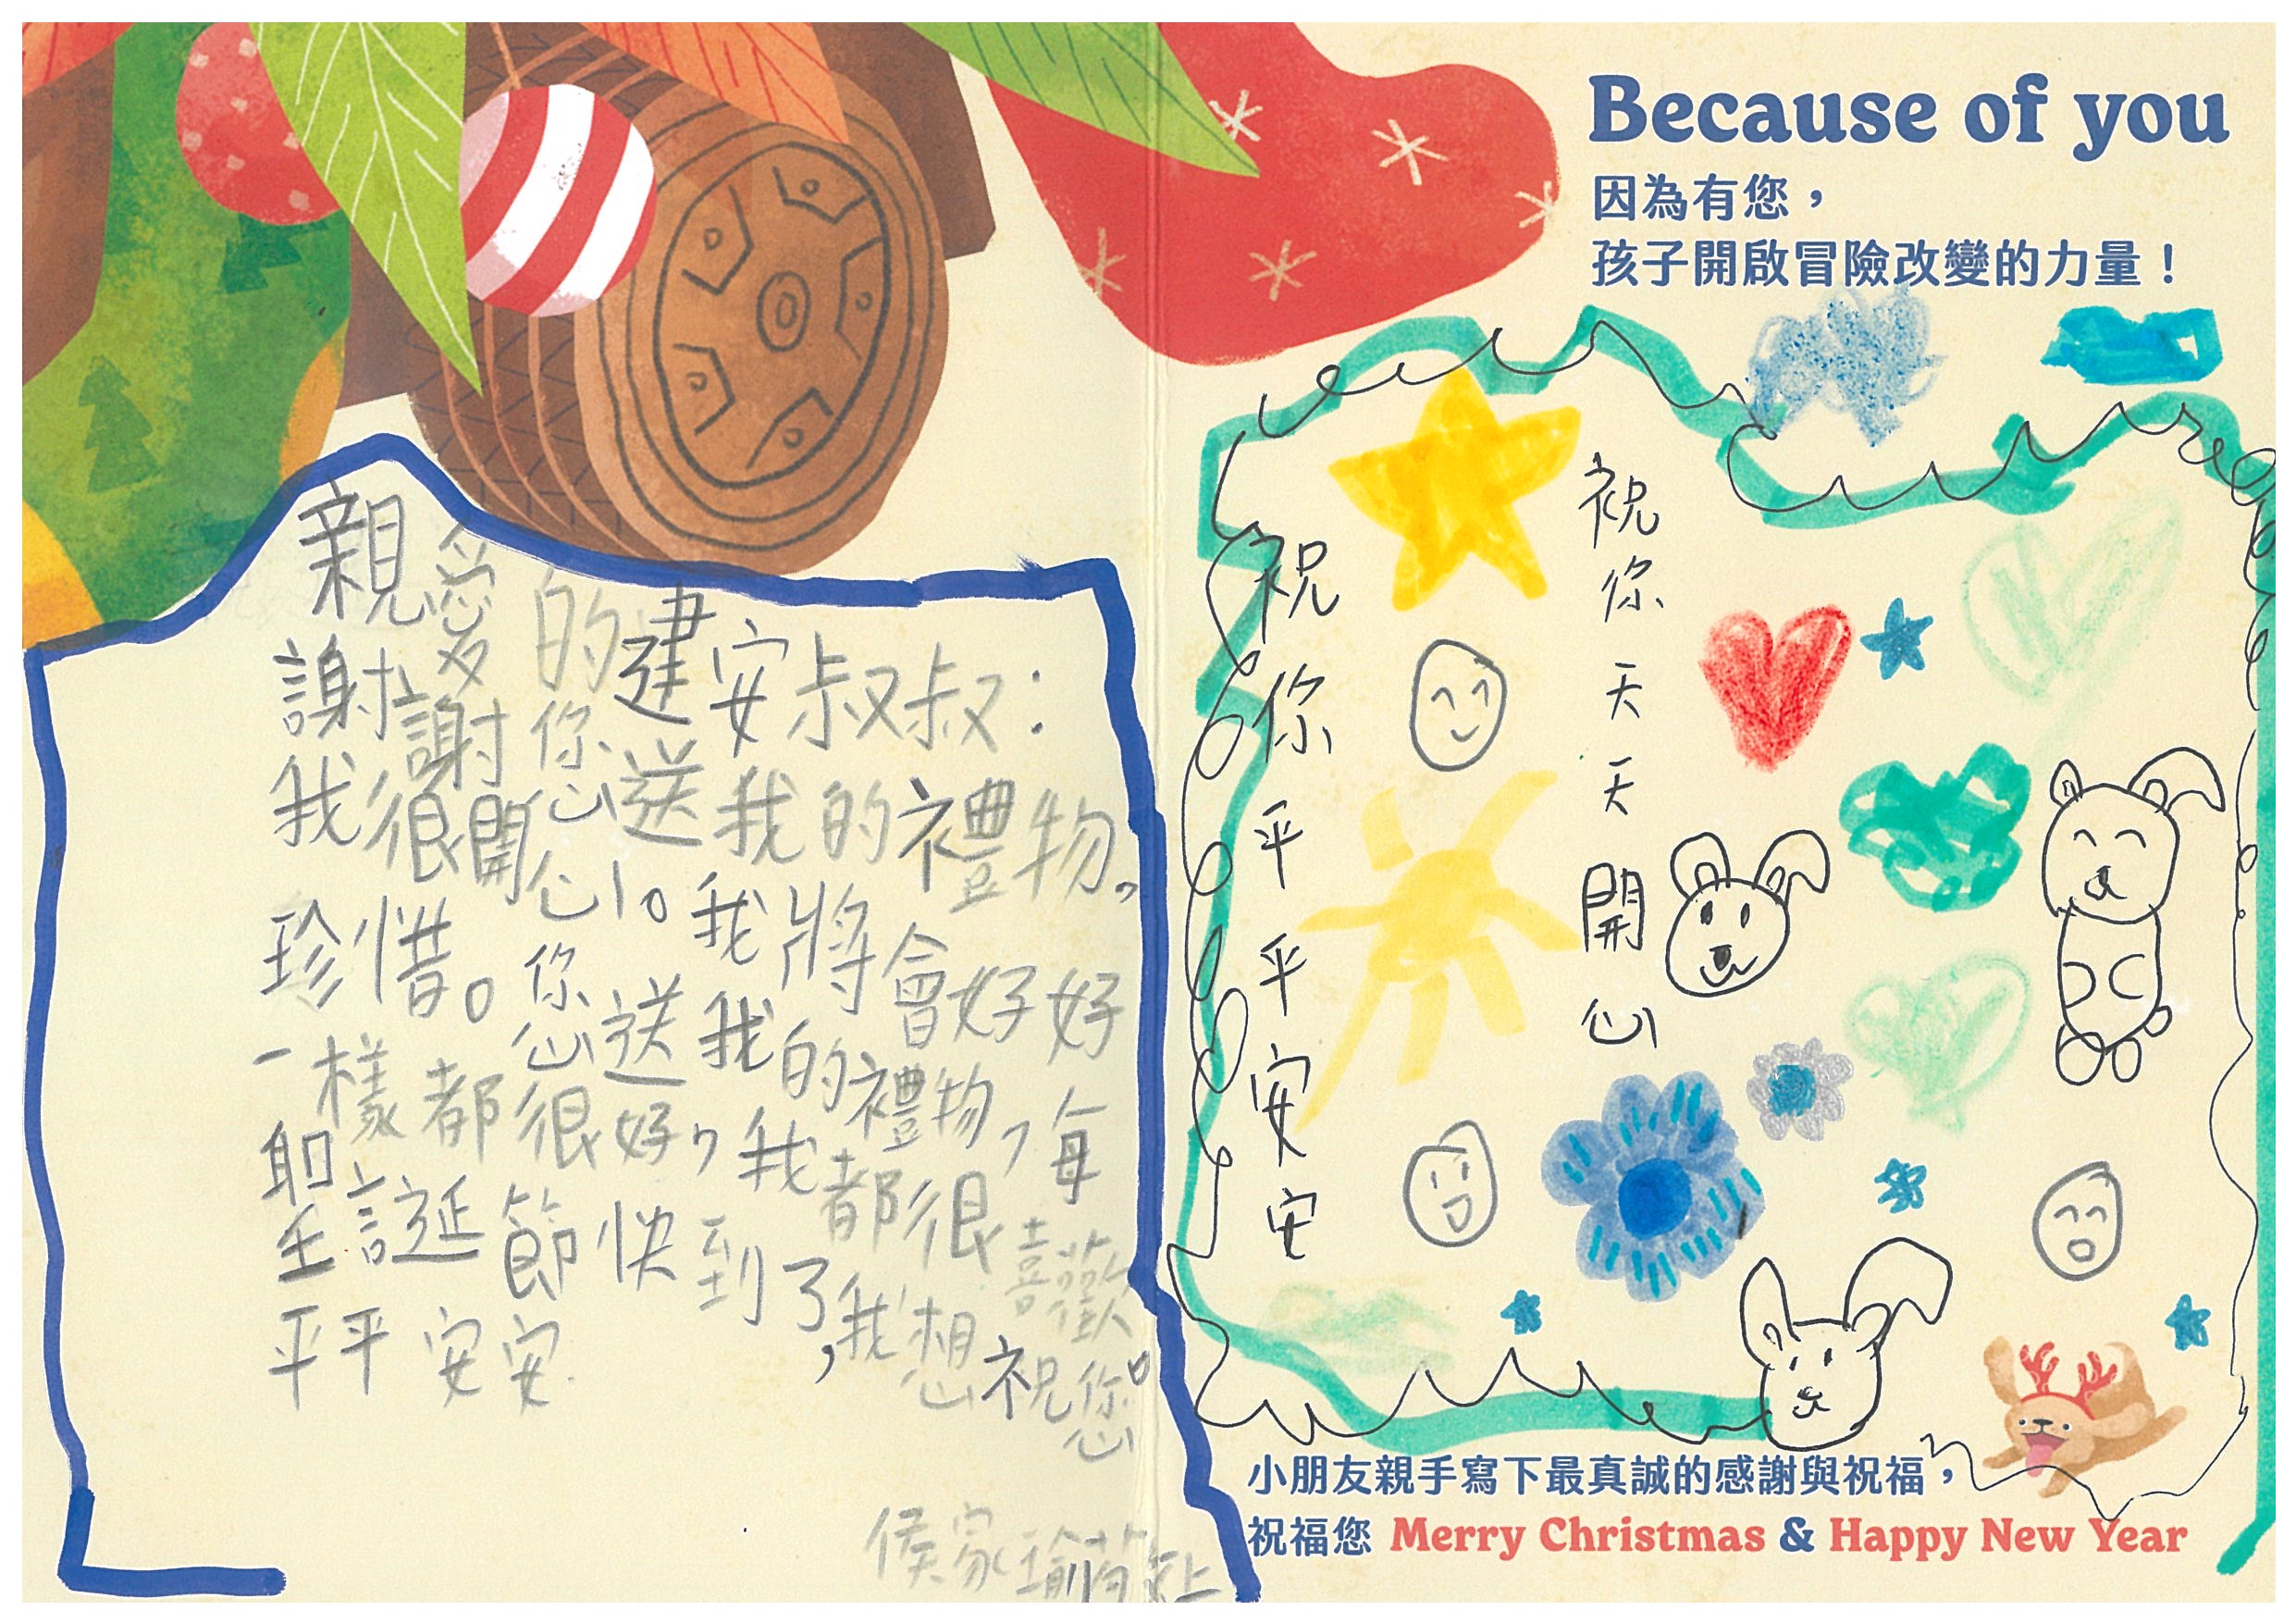 親愛的建安叔叔:
謝謝您送我的禮物,
我很開心。我將會好好
珍惜。您送我的禮物,每
一樣都很好,我都很喜歡。
聖誕節快到了,我想祝您
平平安安
侯家瑜 上
Because of you
因為有您，
孩子開啟冒險改變的力量！
祝你天天開心
祝你平平安安
小朋友親手寫下最真誠的感謝與祝福，
祝福您 Merry Christmas & Happy New Year